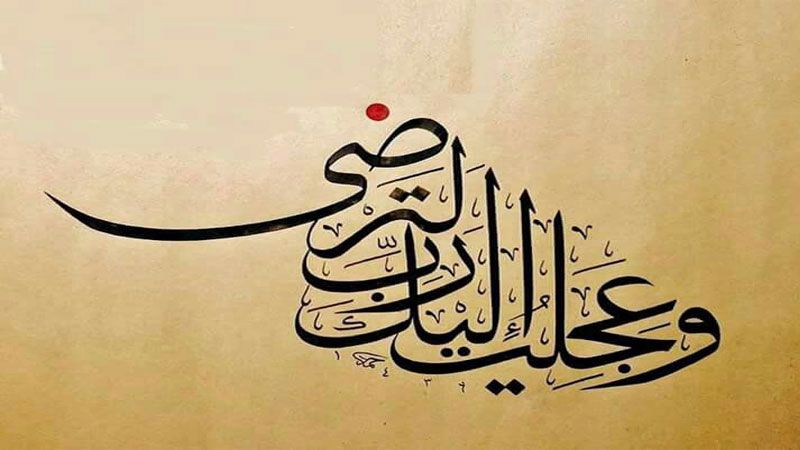 وَعَجِلْتُ إِلَيْكَ رَبِّ لِتَرْضَى
١٤٣٦